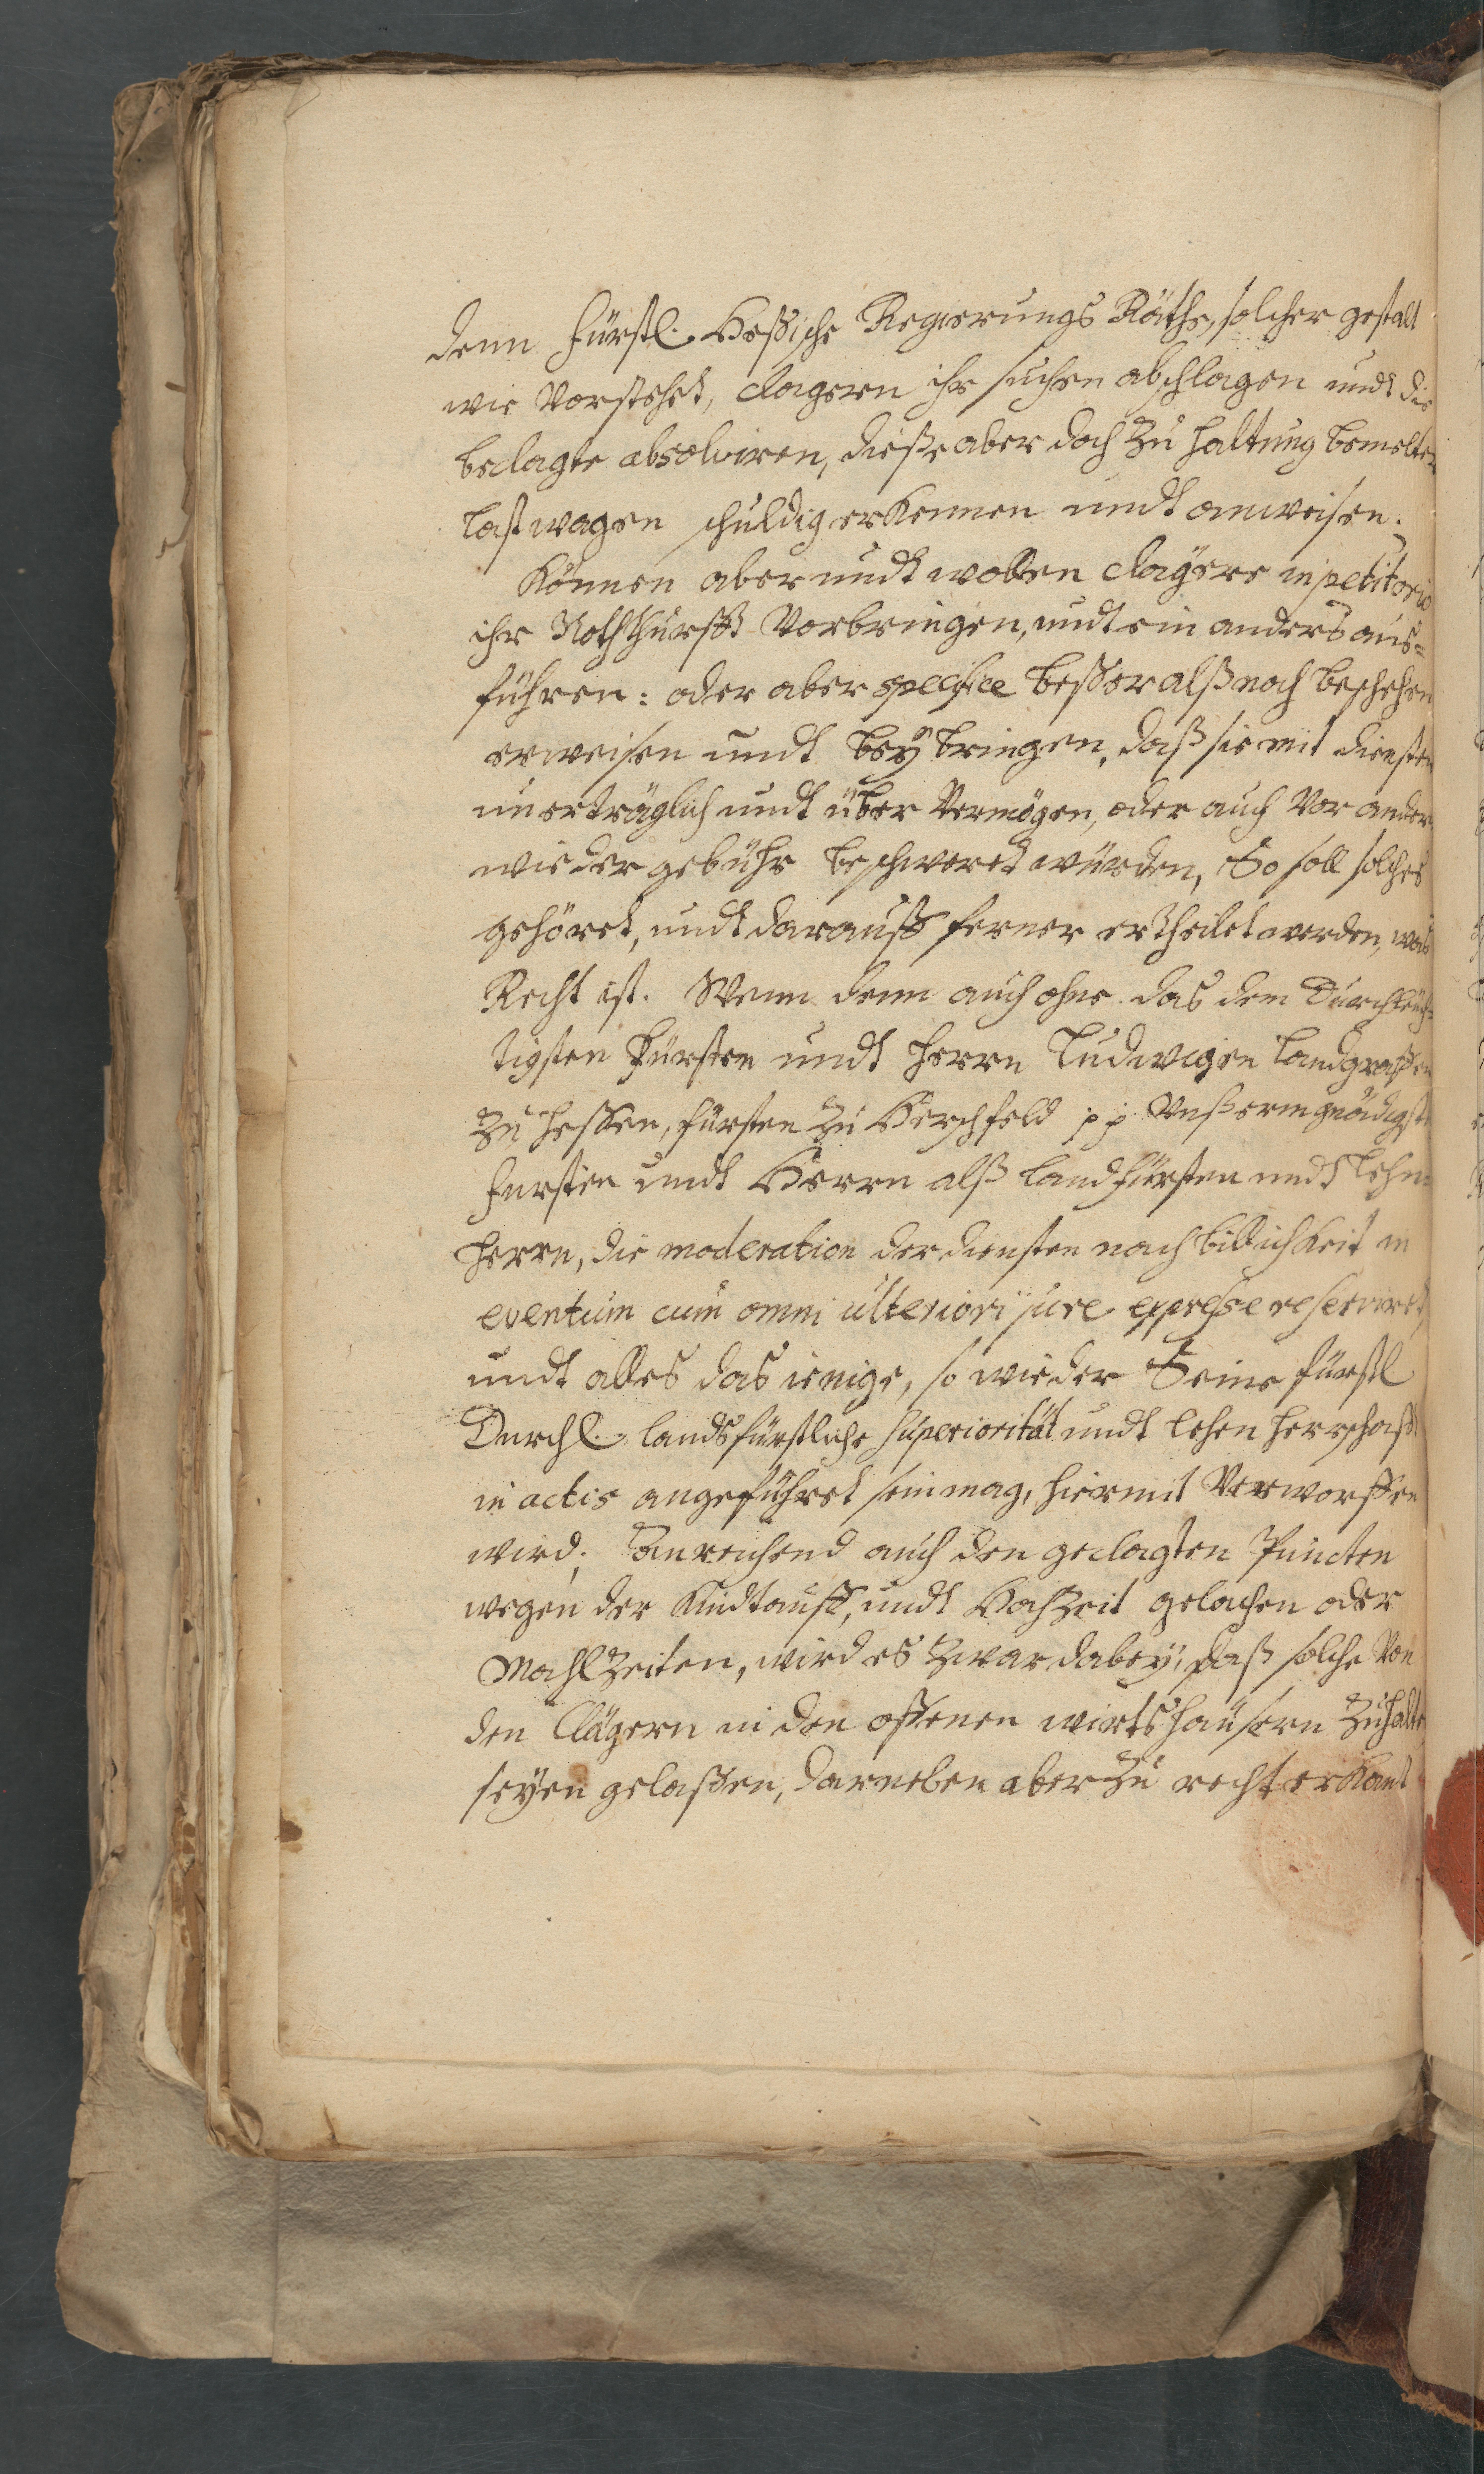 denn fürstl. Heßische Regierungs Räthe, solcher gestalt
wie Vorstehet, clagern ihr suchen abschlagen undt die
beclagte absolviren, diese aber doch zu haltung bemelter
lastwagen schuldig erkennen undt anweisen.
Können aber undt wollen clägere in petitorio
ihr Nothturfft Vorbringen, undt ein anders aus-
führen: oder aber specifice beßer alß noch beschehen
erweisen undt beybringen, daß sie mit diensten
unerträglich undt über Vermögen, oder auch Vor andern
wieder gebühr beschweret würden, So soll solches
gehöret, undt darauff ferner ertheilet werden, was
Recht ist. Wenn denn auch ohne das dem Durchleuch-
tigsten Fürsten undt Herrn Ludwigen Landgraffen
zu Hessen, fürsten zu Herschfeld pp Unßerm gnädigsten
fursten undt Herrn alß landfürsten undt Lehn-
herrn, die moderation der diensten nach billichkeit in
eventum cum omni ulteriori jure expresse reserviret,
undt alles das ienige, so wieder Seine fürstl
Durchl. landsfürstliche superiorität undt lehen herrschafft
in actis angeführet sein mag, hiermit Verworffen
wird; anreichend auch den geclagten Puncten
wegen der Kindtauff, undt Hochzeit gelachen oder
Mahlzeiten, wird es zwar dabey, daß solche Von
den Clägern in den offenen wirtshäusern zuhalten
seyen gelaßen, darneben aber zu recht erkant